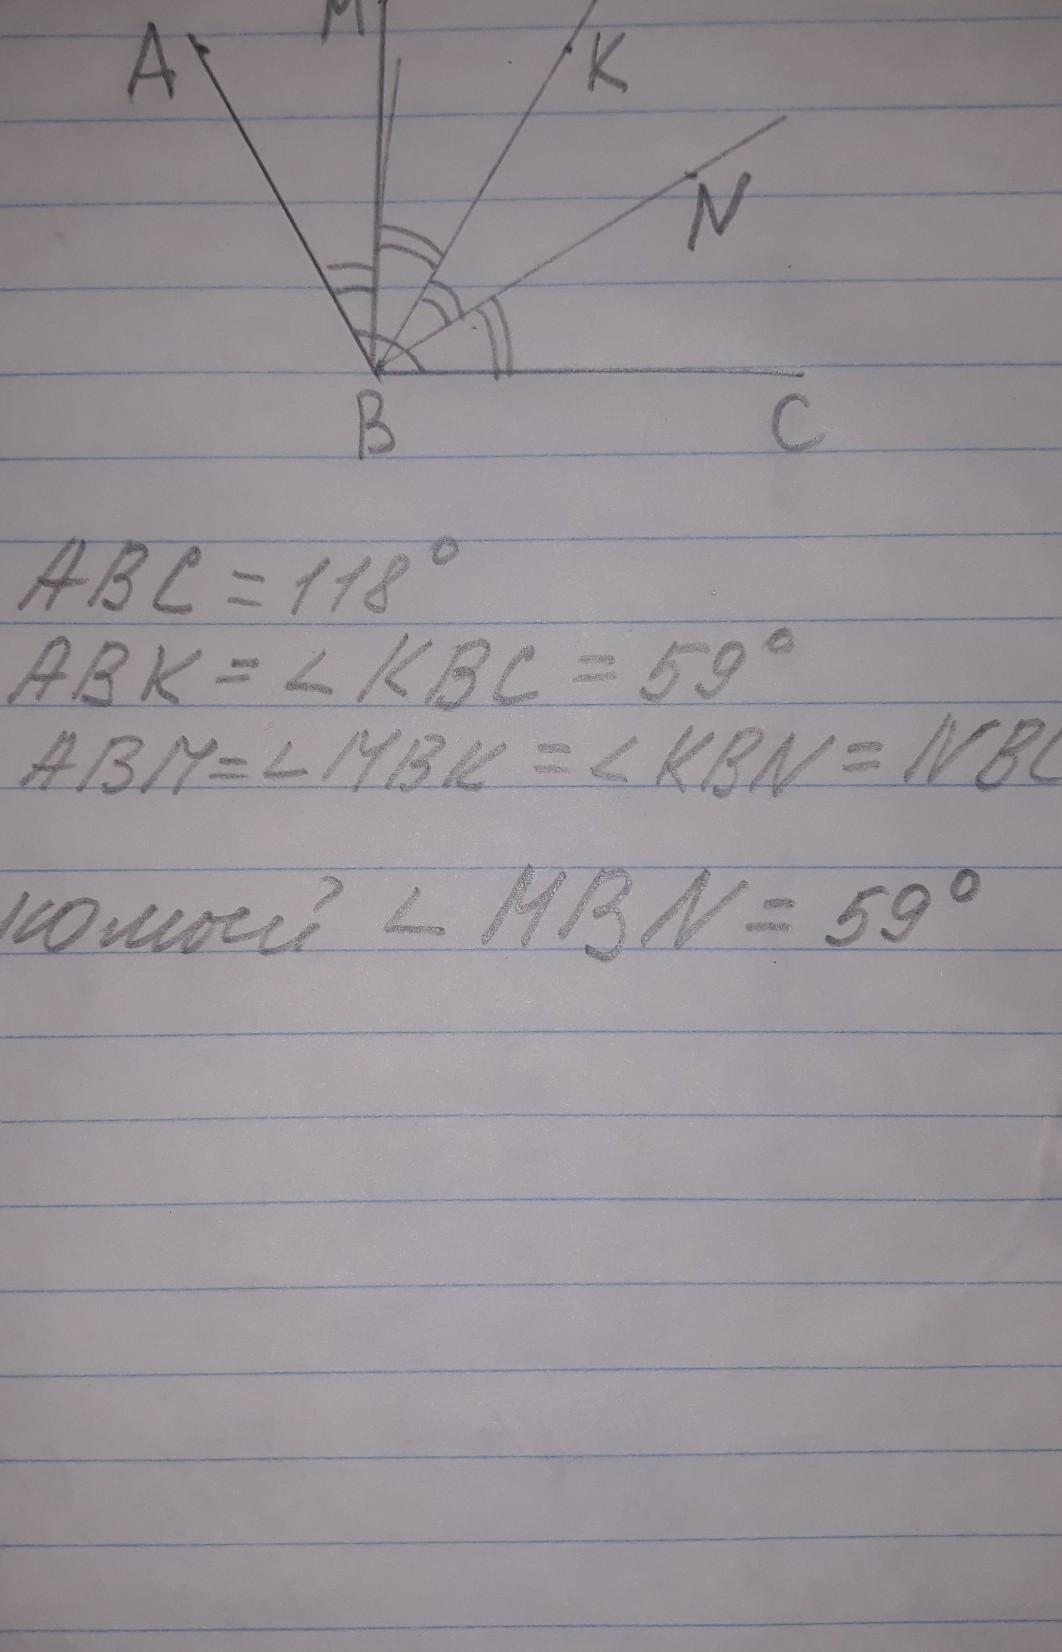 M
A
K
N
B
C
ABC = 118°
ABK = ∠ KBC = 59°
ABM = ∠ MBK = ∠ KBN = NBC
∠ MBN = 59°